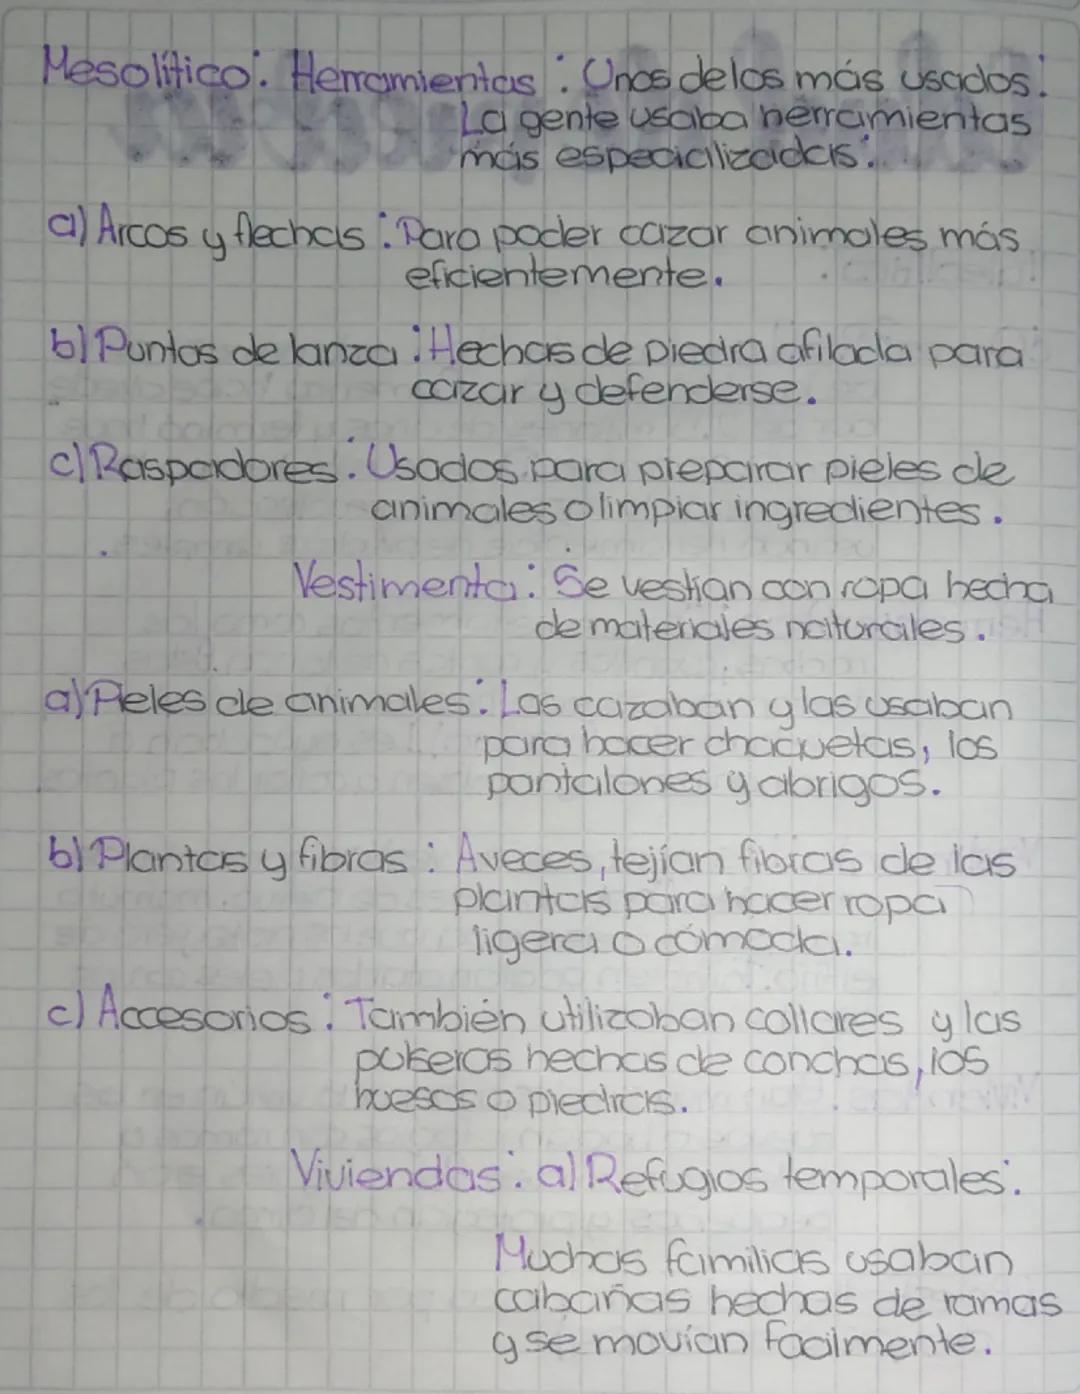 Mesolítico: Herramientas: Unos de los más usados:
La gente usaba herramientas
más especializadas:
a) Arcos y flechas: Para poder cazar animales más
eficientemente.
b) Puntas de lanza: Hechas de piedra afilada para
cazar y defenderse.
c) Raspadores: Usados para preparar pieles de
animales o limpiar ingredientes.
Vestimenta: Se vestian con ropa hecha
de materiales naturales.
a) Pieles de animales: Las cazaban y las usaban
para hacer chaquetas, los
pantalones y abrigos.
b) Plantas y fibras: Aveces, tejían fibras de las
plantas para hacer ropa
ligera o cómoda.
c) Accesorios: También utilizaban collares y las
pulseras hechas de conchas, los
huesos o piedras.
Viviendas: a) Refugios temporales:
Muchas familias usaban
cabañas hechas de ramas
y se movían facilmente.